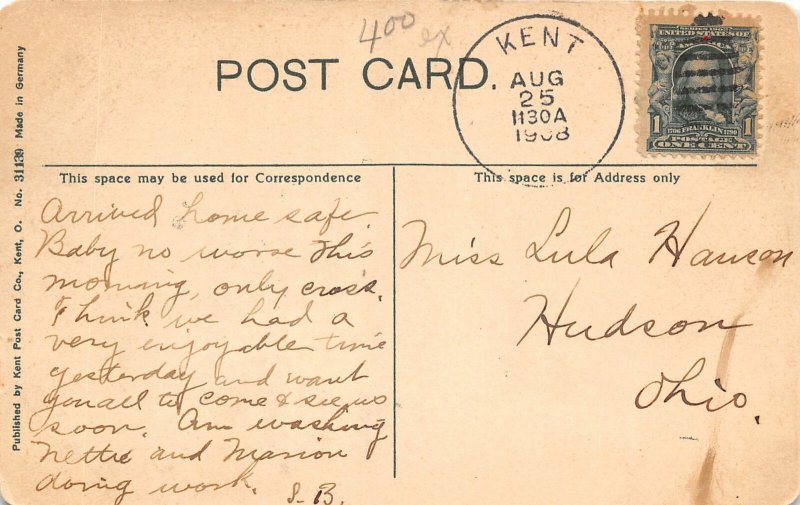 400 ex
POST CARD.
KENT
AUG
25
1130A
1908
SERIES 1902
UNITED STATES OF
AMERICA
1706 FRANKLIN 1790
1 POSTAGE 1
ONE CENT
Published by Kent Post Card Co., Kent, O. No. 31139 Made in Germany
This space may be used for Correspondence
This space is for Address only
Arrived home safe.
Baby no worse this
morning, only cross.
Think we had a
very enjoyable time
yesterday and want
you all to come & see us
soon. Am washing
Nettie and Marion
doing work. S. B.
Miss Lula Hanson
Hudson
Ohio.